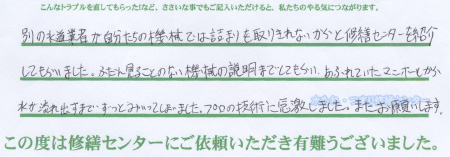 こんなトラブルを直してもらった!など、ささいな事でもご記入いただけると、私たちのやる気につながります。
別の水道業者が自分たちの機械では詰まりを取りきれないからと修繕センターを紹介
してもらいました。ふだん見ることのない機械の説明までしてもらい、あふれていたマンホールから
水が流れ出すまでずっとみいってしまいました。プロの技術に感激しました。またお願いします。
この度は修繕センターにご依頼いただき有難うございました。